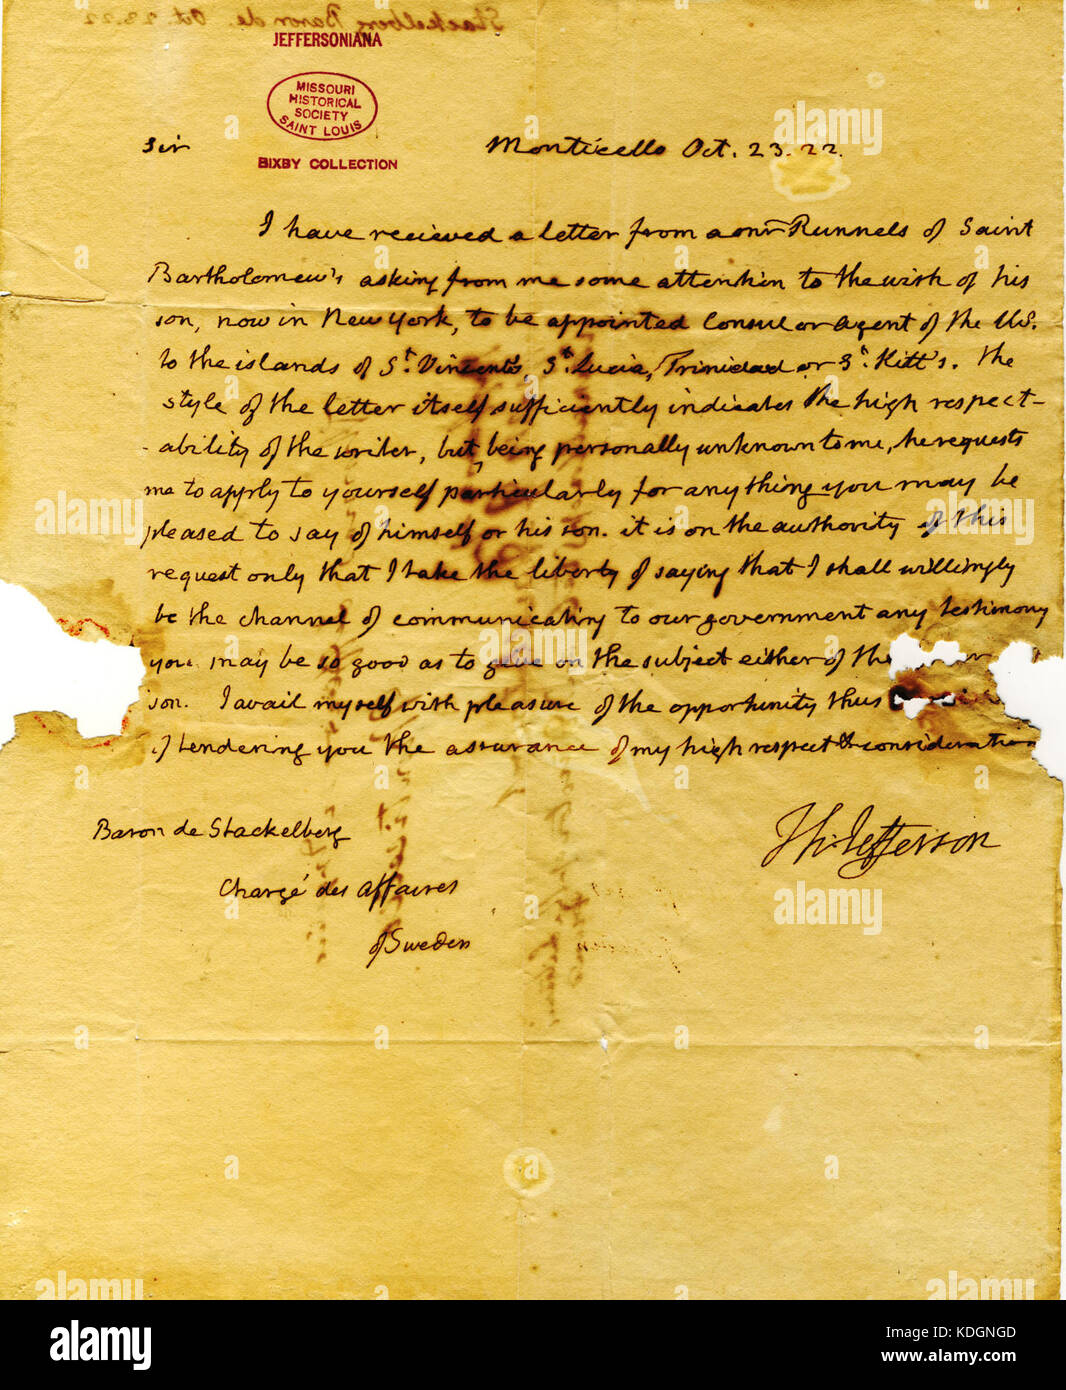 Stackelberg Baron de. Oct. 23. 22
JEFFERSONIANA
MISSOURI
HISTORICAL
SOCIETY
SAINT LOUIS
BIXBY COLLECTION
Sir
Monticello Oct. 23. 22.
I have recieved a letter from a Runnels of Saint
Bartholomew's asking from me some attention to the wish of his
son, now in New York, to be appointed Consul or Agent of the U.S.
to the islands of St. Vincent's, St. Lucia, Trinidad or St. Kitt's. The
style of the letter itself sufficiently indicates the high respect-
-ability of the writer, but, being personally unknown to me, he requests
me to apply to yourself particularly for any thing you may be
pleased to say of himself or his son. it is on the authority of this
request only that I take the liberty of saying that I shall willingly
be the channel of communicating to our government any testimony
you may be so good as to give on the subject either of the
son. I avail myself with pleasure of the opportunity thus
of tendering you the assurance of my high respect & consideration
Th: Jefferson
Baron de Stackelberg
Chargé des affaires
of Sweden
alamy
alamy stock photo
Image ID: KDGNGD
www.alamy.com